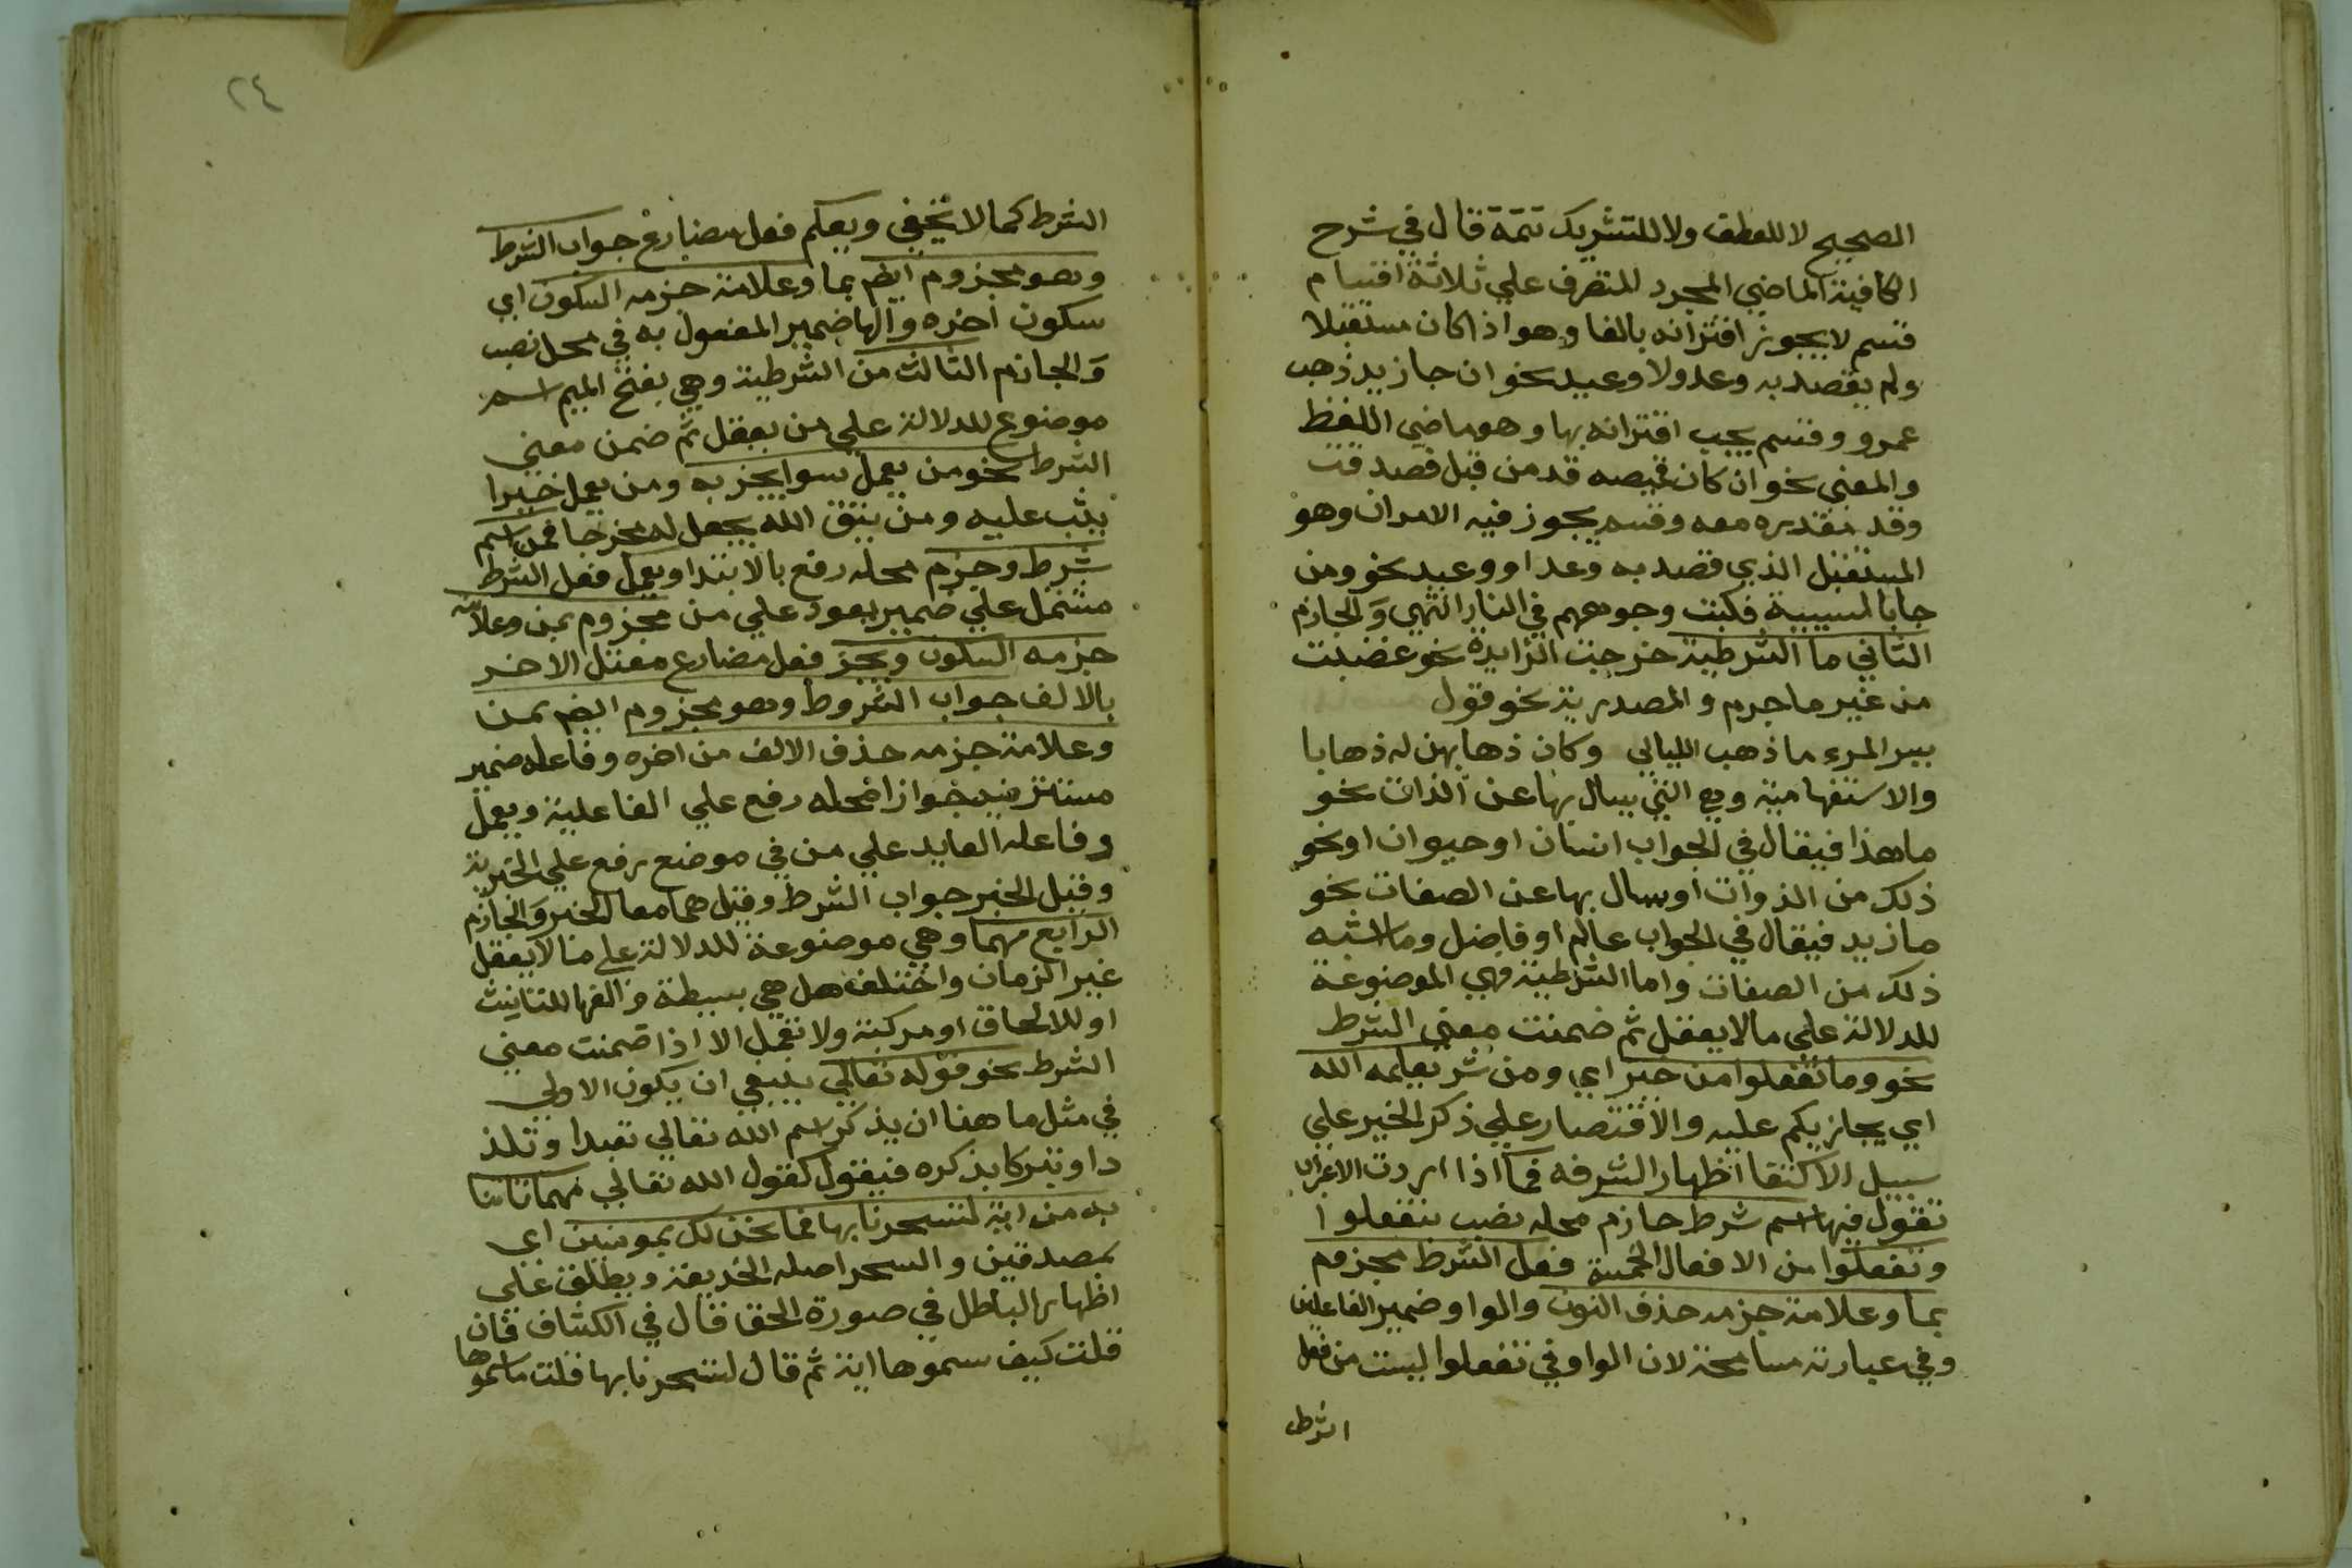 الصحيح لا للعطف ولا للتشريك تتمة قال في شرح
الكافية الماضي المجرد المتصرف علي ثلاثة اقسام
قسم لا يجوز اقترانه بالفا وهو اذا كان مستقبلا
ولم يقصد به وعد ولا وعيد نحو ان جا زيد ذهب
عمرو وقسم يجب اقترانه بها وهو ماضي اللفظ
والمعني نحو ان كان قميصه قد من قبل فصدقت
وقد مقدره معه وقسم يجوز فيه الامران وهو
المستقبل الذي قصد به وعد او وعيد نحو ومن
جا بالسيية فكبت وجوههم في النار انتهي والجازم
الثاني ما الشرطية خرجت الزايدة نحو غضبت
من غير ما جرم والمصدرية نحو قول
يسر المرء ما ذهب الليالي وكان ذهابهن له ذهابا
والاستفهامية وهي التي يسال بها عن الذات نحو
ما هذا فيقال في الجواب انسان او حيوان او نحو
ذلك من الذوات او يسال بها عن الصفات نحو
ما زيد فيقال في الجواب عالم او فاضل وما اشبه
ذلك من الصفات واما الشرطية فهي الموضوعة
للدلالة علي مالا يعقل ثم ضمنت معني الشرط
نحو وما تفعلوا من خير اي ومن شر يعلمه الله
اي يجازيكم عليه والاقتصار علي ذكر الخير علي
سبيل الاكتفا اظهار الشرفه فما اذا اردت الاعراب
تقول فيها اسم شرط جازم محله نصب بتفعلوا
وتفعلوا من الافعال الخمسة فعل الشرط مجزوم
بما وعلامة جزمه حذف النون والواو ضمير الفاعلين
وفي عبارته مسامحة لان الواو في تفعلوا ليست من فعل
الشرط
٢٤
الشرط كما لا يخفي ويعلم فعل مضارع جواب الشرط
وهو مجزوم ايضم بما وعلامة جزمه السكون اي
سكون اخره والها ضمير المفعول به في محل نصب
والجازم الثالث من الشرطية وهي بفتح الميم اسم
موضوع للدلالة علي من يعقل ثم ضمن معني
الشرط نحو من يعمل سوا يجز به ومن يعمل خيرا
يثب عليه ومن يتق الله يجعل له مخرجا فمن اسم
شرط وجزم محله رفع بالابتدا ويعمل فعل الشرط
مشتمل علي ضمير يعود علي من مجزوم بمن وعلامة
جزمه السكون ويجز فعل مضارع معتل الاخر
بالالف جواب الشروط وهو مجزوم ايضم بمن
وعلامة جزمه حذف الالف من اخره وفاعله ضمير
مستتر فيه جوازا محله رفع علي الفاعلية ويعمل
وفاعله العايد علي من في موضع رفع علي الخبرية
وقيل الخبر جواب الشرط وقيل هما معا الخبر والجازم
الرابع مهما وهي موضوعة للدلالة علي ما لا يعقل
غير الزمان واختلف هل هي بسيطة والفها للتانيث
او للالحاق او مركبة ولا تعمل الا اذا ضمنت معني
الشرط نحو قوله تعالي ينبغي ان يكون الاولي
في مثل ما هنا ان يذكر اسم الله تعالي تعبدا وتلذ
دا وتبركا بذكره فيقول كقول الله تعالي مهما تاتنا
به من اية لتسحرنا بها فما نحن لك بمومنين اي
بمصدقين والسحر اصله الخديعة ويطلق علي
اظهار الباطل في صورة الحق قال في الكشاف فان
قلت كيف سموها اية ثم قال لتسحرنا بها قلت ما سموها